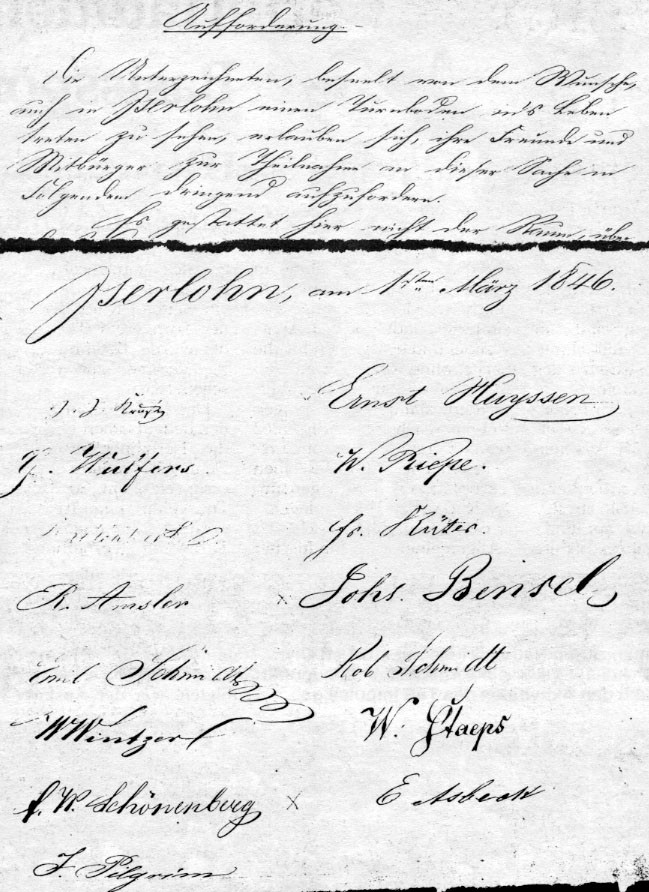 Aufforderung.
Die Unterzeichneten, beseelt von dem Wunsche,
auch in Iserlohn einen Turnboden in's Leben
treten zu sehen, erlauben sich, ihre Freunde und
Mitbürger zur Theilnahme an dieser Sache in
Folgendem dringend aufzufordern.
Es gestattet hier nicht der Raum, über
Iserlohn, am 1sten März 1846.
Ernst Huyssen
Wulfers
W. Riepe.
Fr. Rüter.
R. Amsler
x Johs. Bensel
Emil Schmidt
Rob Schmidt
W Wintzer
W. Staeps
F. W. Schönenberg x
E Asbeck
F. Pilgrim